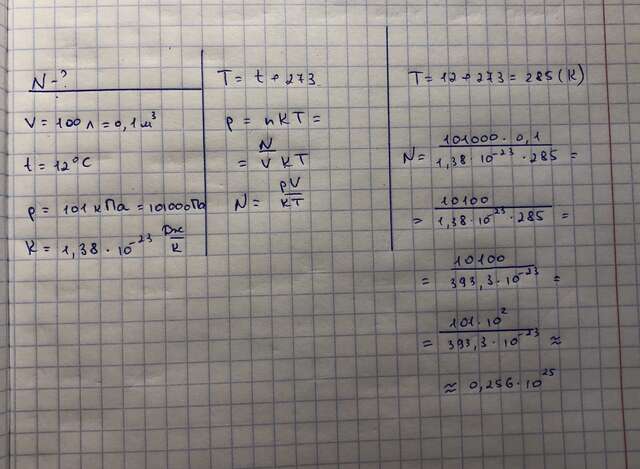 N - ?
V = 100 л = 0,1 м³
t = 12°C
p = 101 кПа = 101000 Па
K = 1,38 · 10⁻²³ Дж/К
T = t + 273
p = nKT =
= N/V KT
N = pV/KT
T = 12 + 273 = 285 (K)
N = 101000 · 0,1 / 1,38 · 10⁻²³ · 285 =
= 10100 / 1,38 · 10⁻²³ · 285 =
= 10100 / 393,3 · 10⁻²³ =
= 101 · 10² / 393,3 · 10⁻²³ ≈
≈ 0,256 · 10²⁵